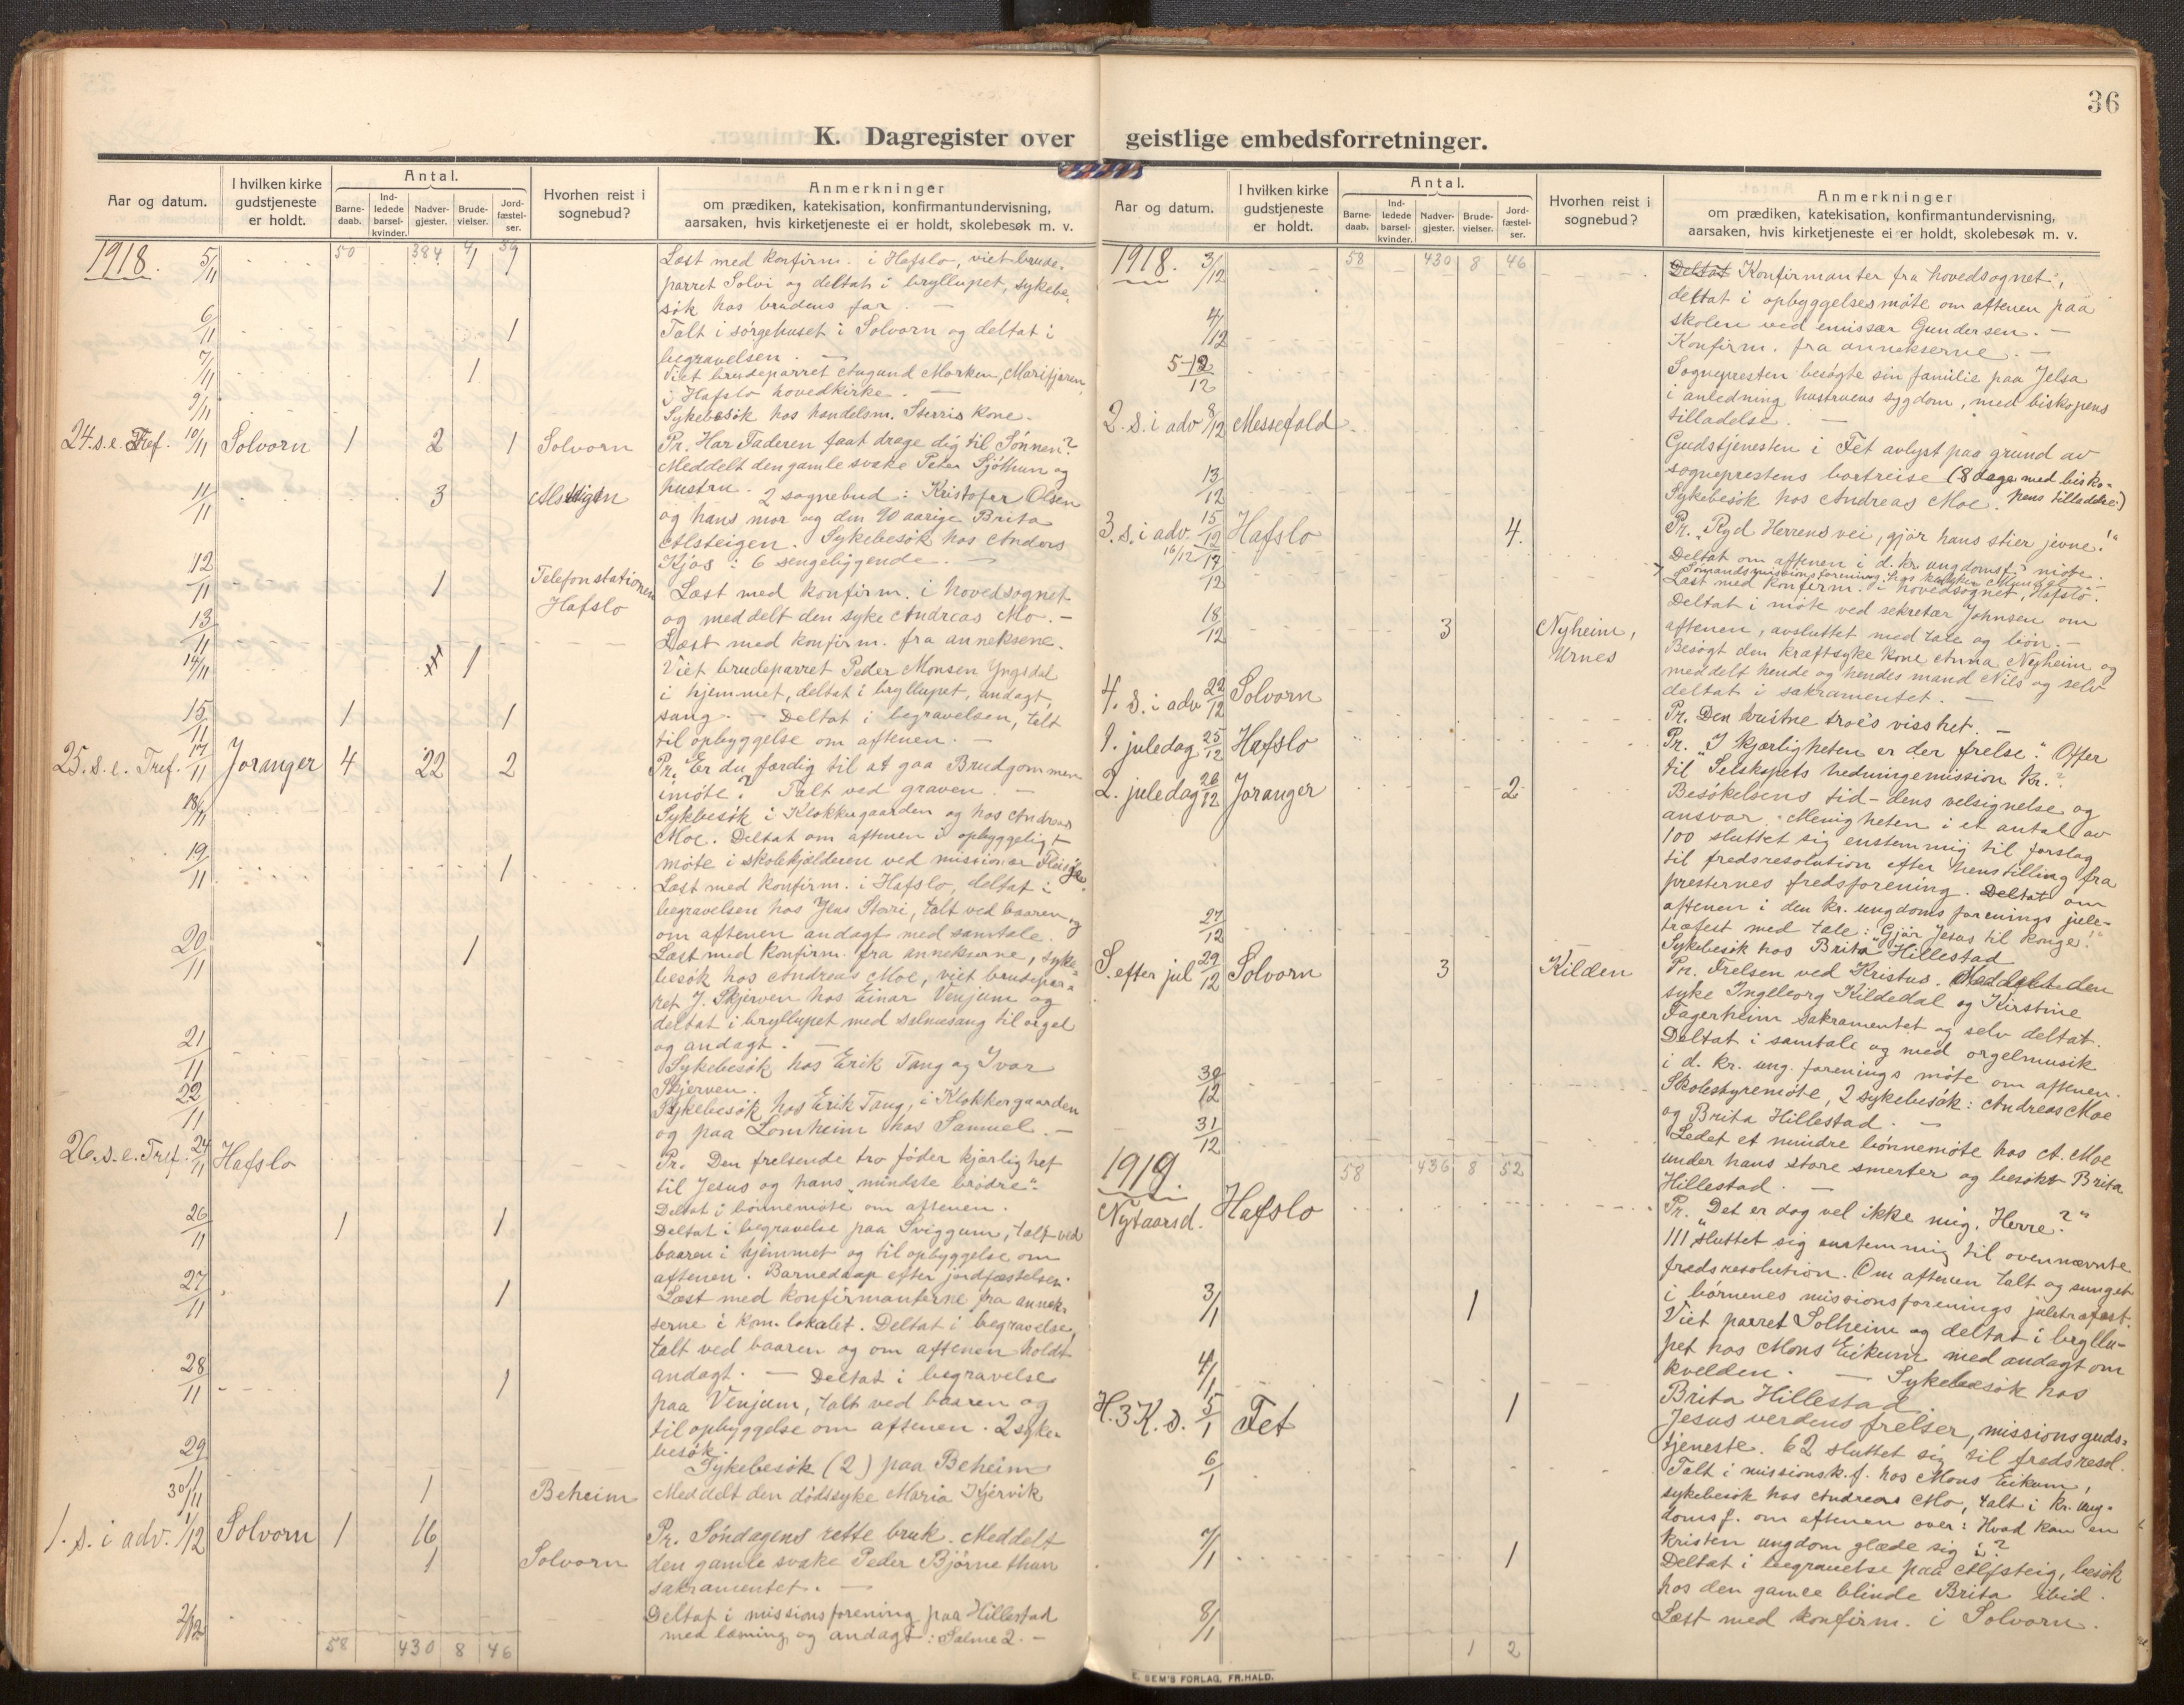 36
K. Dagregister over geistlige embedsforretninger.
Aar og datum.
I hvilken kirke gudstjeneste er holdt.
Antal.
Barne-daab.
Ind-ledede barsel-kvinder.
Nadver-gjester.
Brude-vielser.
Jord-fæstel-ser.
Hvorhen reist i sognebud?
Anmerkninger
om prædiken, katekisation, konfirmantundervisning,
aarsaken, hvis kirketjeneste ei er holdt, skolebesøk m. v.
1918. 5/11 50 384 4/1 39/1 Læst med konfirm. i Hafslo, viet brude-
parret Solvi og deltat i bryllupet, sykebe-
søk hos brudens far. —
6/11 1 Talt i sørgehuset i Solvorn og deltat i
begravelsen. —
7/11 1 Viet brudeparret Augund Morken, Marifjæren
i Hafslo hovedkirke. —
9/11 Sykebesøk hos handelsm. Sterris kone.
24. s. e. Tref. 10/11 Solvorn 1 2 1 Solvorn Pr. Har Faderen faat drage dig til Sønnen?
Meddelt den gamle svake Peter Sjøthun og
hustru. 2 sognebud: Kristofer Olsen
11/11 3 Alsteigen
og hans mor og den 90 aarige Brita
Alsteigen. Sykebesøk hos Anders
Kjos: 6 sengeliggende. —
12/11 1 Telefonstationen Hafslo Læst med konfirm. i hovedsognet
og meddelt den syke Andreas Mo. —
13/11 Læst med konfirm. fra anneksene.
14/11 1 Viet brudeparret Peder Monsen Yngsdal
i hjemmet, deltat i bryllupet, andagt,
15/11 1 1 sang. — Deltat i begravelsen, talt
til opbyggelse om aftenen. —
25. s. e. Tref. 17/11 Joranger 4 22 2 Pr. Er du færdig til at gaa Brudgommen
imøte? Talt ved graven. —
18/11 Sykebesøk i Klokkergaarden og hos Andreas
Moe. Deltat om aftenen i opbyggeligt
møte i skolekjælderen ved missionær
19/11 1 Læst med konfirm. i Hafslo, deltat i
begravelsen hos Jens Sterri, talt ved baaren og
om aftenen andagt med samtale.
20/11 1 Læst med konfirm. fra annekserne, syke-
besøk hos Andreas Moe, viet brudepar-
ret J. Skjerven hos Einar Venjum og
deltat i bryllupet med salmesang til orgel
og andagt. —
21/11 Sykebesøk hos Erik Tang og Ivar
Skjerven.
22/11 Sykebesøk hos Erik Tang, i Klokkergaarden
og paa Lomheim hos Samuel. —
26. s. e. Tref. 24/11 Hafslo Pr. Den frelsende tro føder kjærlighet
til Jesus og hans „mindste brødre“.
Deltat i bønnemøte om aftenen.
26/11 1 1 Deltat i begravelse paa Sviggum, talt ved
baaren i hjemmet og til opbyggelse om
aftenen. Barnedaap efter jordfæstelsen.
27/11 1 Læst med konfirmanterne fra annek-
serne i Kom. lokalet. Deltat i begravelse,
talt ved baaren og om aftenen holdt
28/11 1 andagt. — Deltat i begravelse
paa Venjum, talt ved baaren og
til opbyggelse om aftenen. 2 syke-
besøk.
29/11 Sykebesøk (2) paa Beheim
30/11 1 Beheim Meddelt den dødssyke Maria Kjervik
1. s. i adv. 1/12 Solvorn 1 16 Pr. Søndagens rette bruk. Meddelt
1 Solvorn den gamle svake Peder Bjørnethun
sakramentet. —
2/12 Deltat i missionsforening paa Hillestad
med læsning og andagt: Salme 2. —
58 430 8 46
Aar og datum.
I hvilken kirke gudstjeneste er holdt.
Antal.
Barne-daab.
Ind-ledede barsel-kvinder.
Nadver-gjester.
Brude-vielser.
Jord-fæstel-ser.
Hvorhen reist i sognebud?
Anmerkninger
om prædiken, katekisation, konfirmantundervisning,
aarsaken, hvis kirketjeneste ei er holdt, skolebesøk m. v.
1918. 3/12 58 430 8 46 Deltat Konfirmanter fra hovedsognet,
deltat i opbyggelsesmøte om aftenen paa
skolen ved emissær Gundersen. —
4/12 Konfirm. fra annekserne. —
5-12/12 Sognepresten besøgte sin familie paa Jelsa
i anledning hustruens sygdom, med biskopens
tilladelse. —
2. s. i adv 8/12 Messefald Gudstjenesten i Fet avlyst paa grund av
sogneprestens bortreise (8 dage med bisko-
pens tilladelse)
13/12 Sykebesøk hos Andreas Moe.
3. s. i adv. 15/12 Hafslo 4. Pr. „Ryd Herrens vei, gjør hans stier jevne!“
Deltat om aftenen i d. kr. ungdomsf.s møte.
16/12
17/12 Læst med konfirm. i hovedsognet, Hafslo.
Deltat i møte ved sekretær Johnsen om
aftenen, avsluttet med tale og bøn. —
18/12 3 Nyheim, Urnes Besøgt den kræftsyke kone Anna Nyheim og
meddelt hende og hendes mand Nils og selv
deltat i sakramentet. —
4. s. i adv 22/12 Solvorn Pr. Den kristne troes visshet. —
1. juledag 25/12 Hafslo Pr. „I kjærligheten er der frelse.“ Offer
til Selskapets hedningemission Kr.?
2. juledag 26/12 Joranger 2 Besøkelsens tid – dens velsignelse og
ansvar. Menigheten i et antal av
100 sluttet sig enstemmig til forslag
til fredsresolution efter henstilling fra
presternes fredsforening. Deltat om
aftenen i den kr. ungdomsforenings jule-
træfest med tale: „Gjør Jesus til konge!“
27/12 Sykebesøk hos Brita Hillestad
S. efter jul 29/12 Solvorn 3 Kilden Pr. Frelsen ved Kristus. Meddelt den
syke Ingeborg Kildedal og Kirstine
Fagerheim sakramentet og selv deltat.
Deltat i samtale og med orgelmusik
i d. kr. ung. forenings møte om aftenen.
30/12 Skolestyremøte, 2 sykebesøk: Andreas Moe
og Brita Hillestad. —
31/12 Ledet et mindre bønnemøte hos A. Moe
under hans store smerter og besøkt Brita
Hillestad. —
1919. 58 436 8 52
Nytaarsd. Hafslo Pr. „Det er dog vel ikke mig, Herre?“
111 sluttet sig enstemmig til ovennævnte
fredsresolution. Om aftenen talt og sunget
i børnenes missionsforenings juletræfest.
3/1 1 Viet parret Solheim og deltat i bryllu-
pet hos Mons Eikum med andagt om
4/1 kvelden. — Sykebesøk hos
Brita Hillestad.
H. 3 K. d. 5/1 Fet 1 Jesus verdens frelser, missionsguds-
tjeneste. 62 sluttet sig til fredsresol.
6/1 Talt i missionsk.f. hos Mons Eikum,
sykebesøk hos Andreas Mo, talt i kr. ung-
domsf. om aftenen over: Hvad kan en
kristen ungdom glæde sig i?
7/1 1 Deltat i begravelse paa Alfsteig, besøk
hos den gamle blinde Brita ibid.
8/1 Læst med konfirm. i Solvorn.
1 2
E. SEM'S FORLAG, FR.HALD.